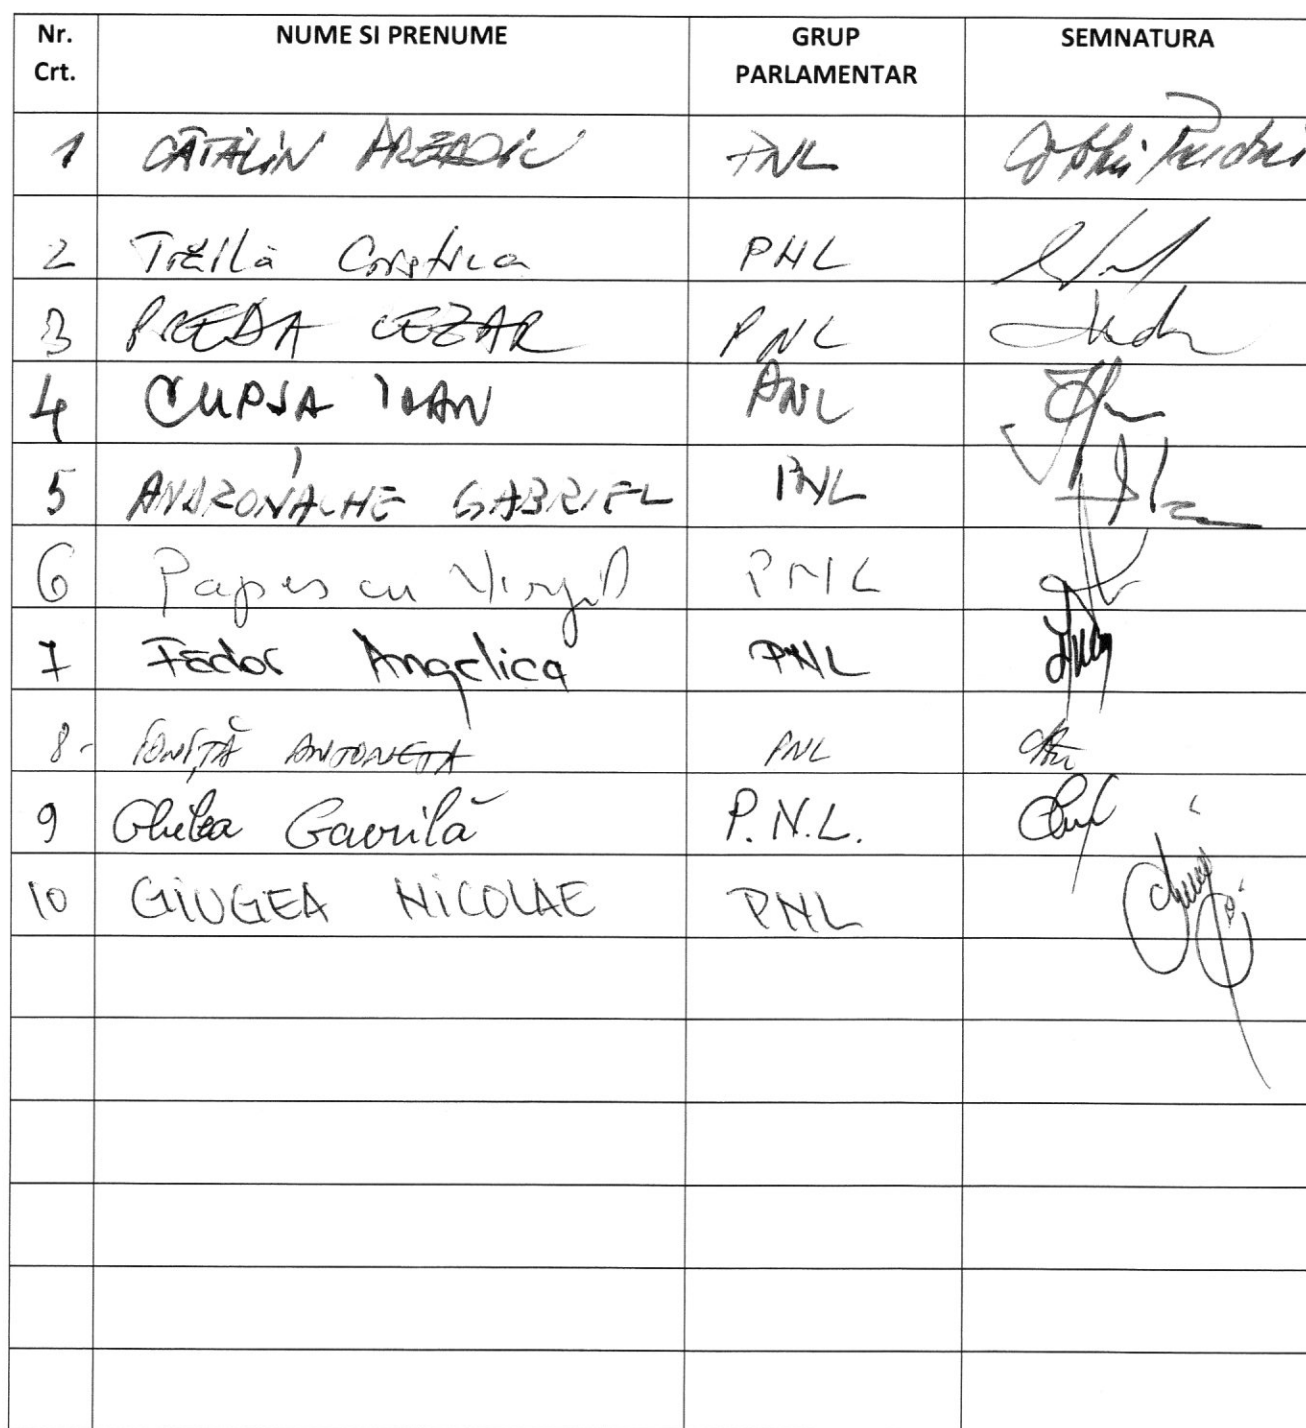 Nr. Crt. NUME SI PRENUME GRUP PARLAMENTAR SEMNATURA
1 CĂTĂLIN PNL
2 Trăilă PNL
3 PREDA CEZAR PNL
4 CUPȘA IOAN PNL
5 ANDRONACHE GABRIEL PNL
6 Popescu Virgil PNL
7 Fădor Angelica PNL
8- IONIȚĂ ANTONETA PNL
9 Ghilea Gavrilă P.N.L.
10 GIUGEA NICOLAE PNL